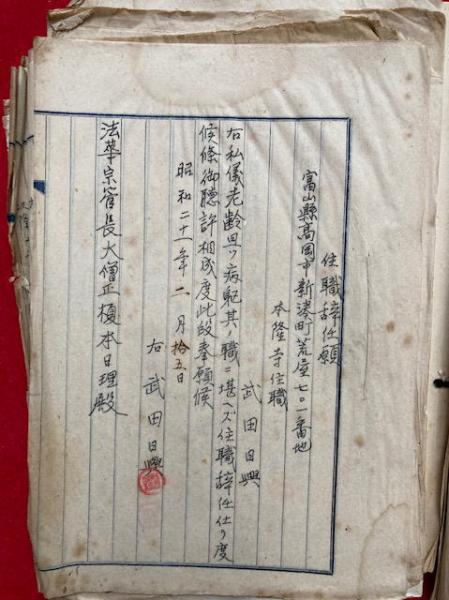 住職辞任願
富山縣高岡市新湊町荒屋七〇一番地
本隆寺住職
武田日興
右私儀老齢且ツ病軀其ノ職ニ堪ヘズ住職辞任仕リ度
候條御聴許相成度此段奉願候
昭和二十一年二月拾五日
右武田日興
法華宗管長大僧正榎本日理殿